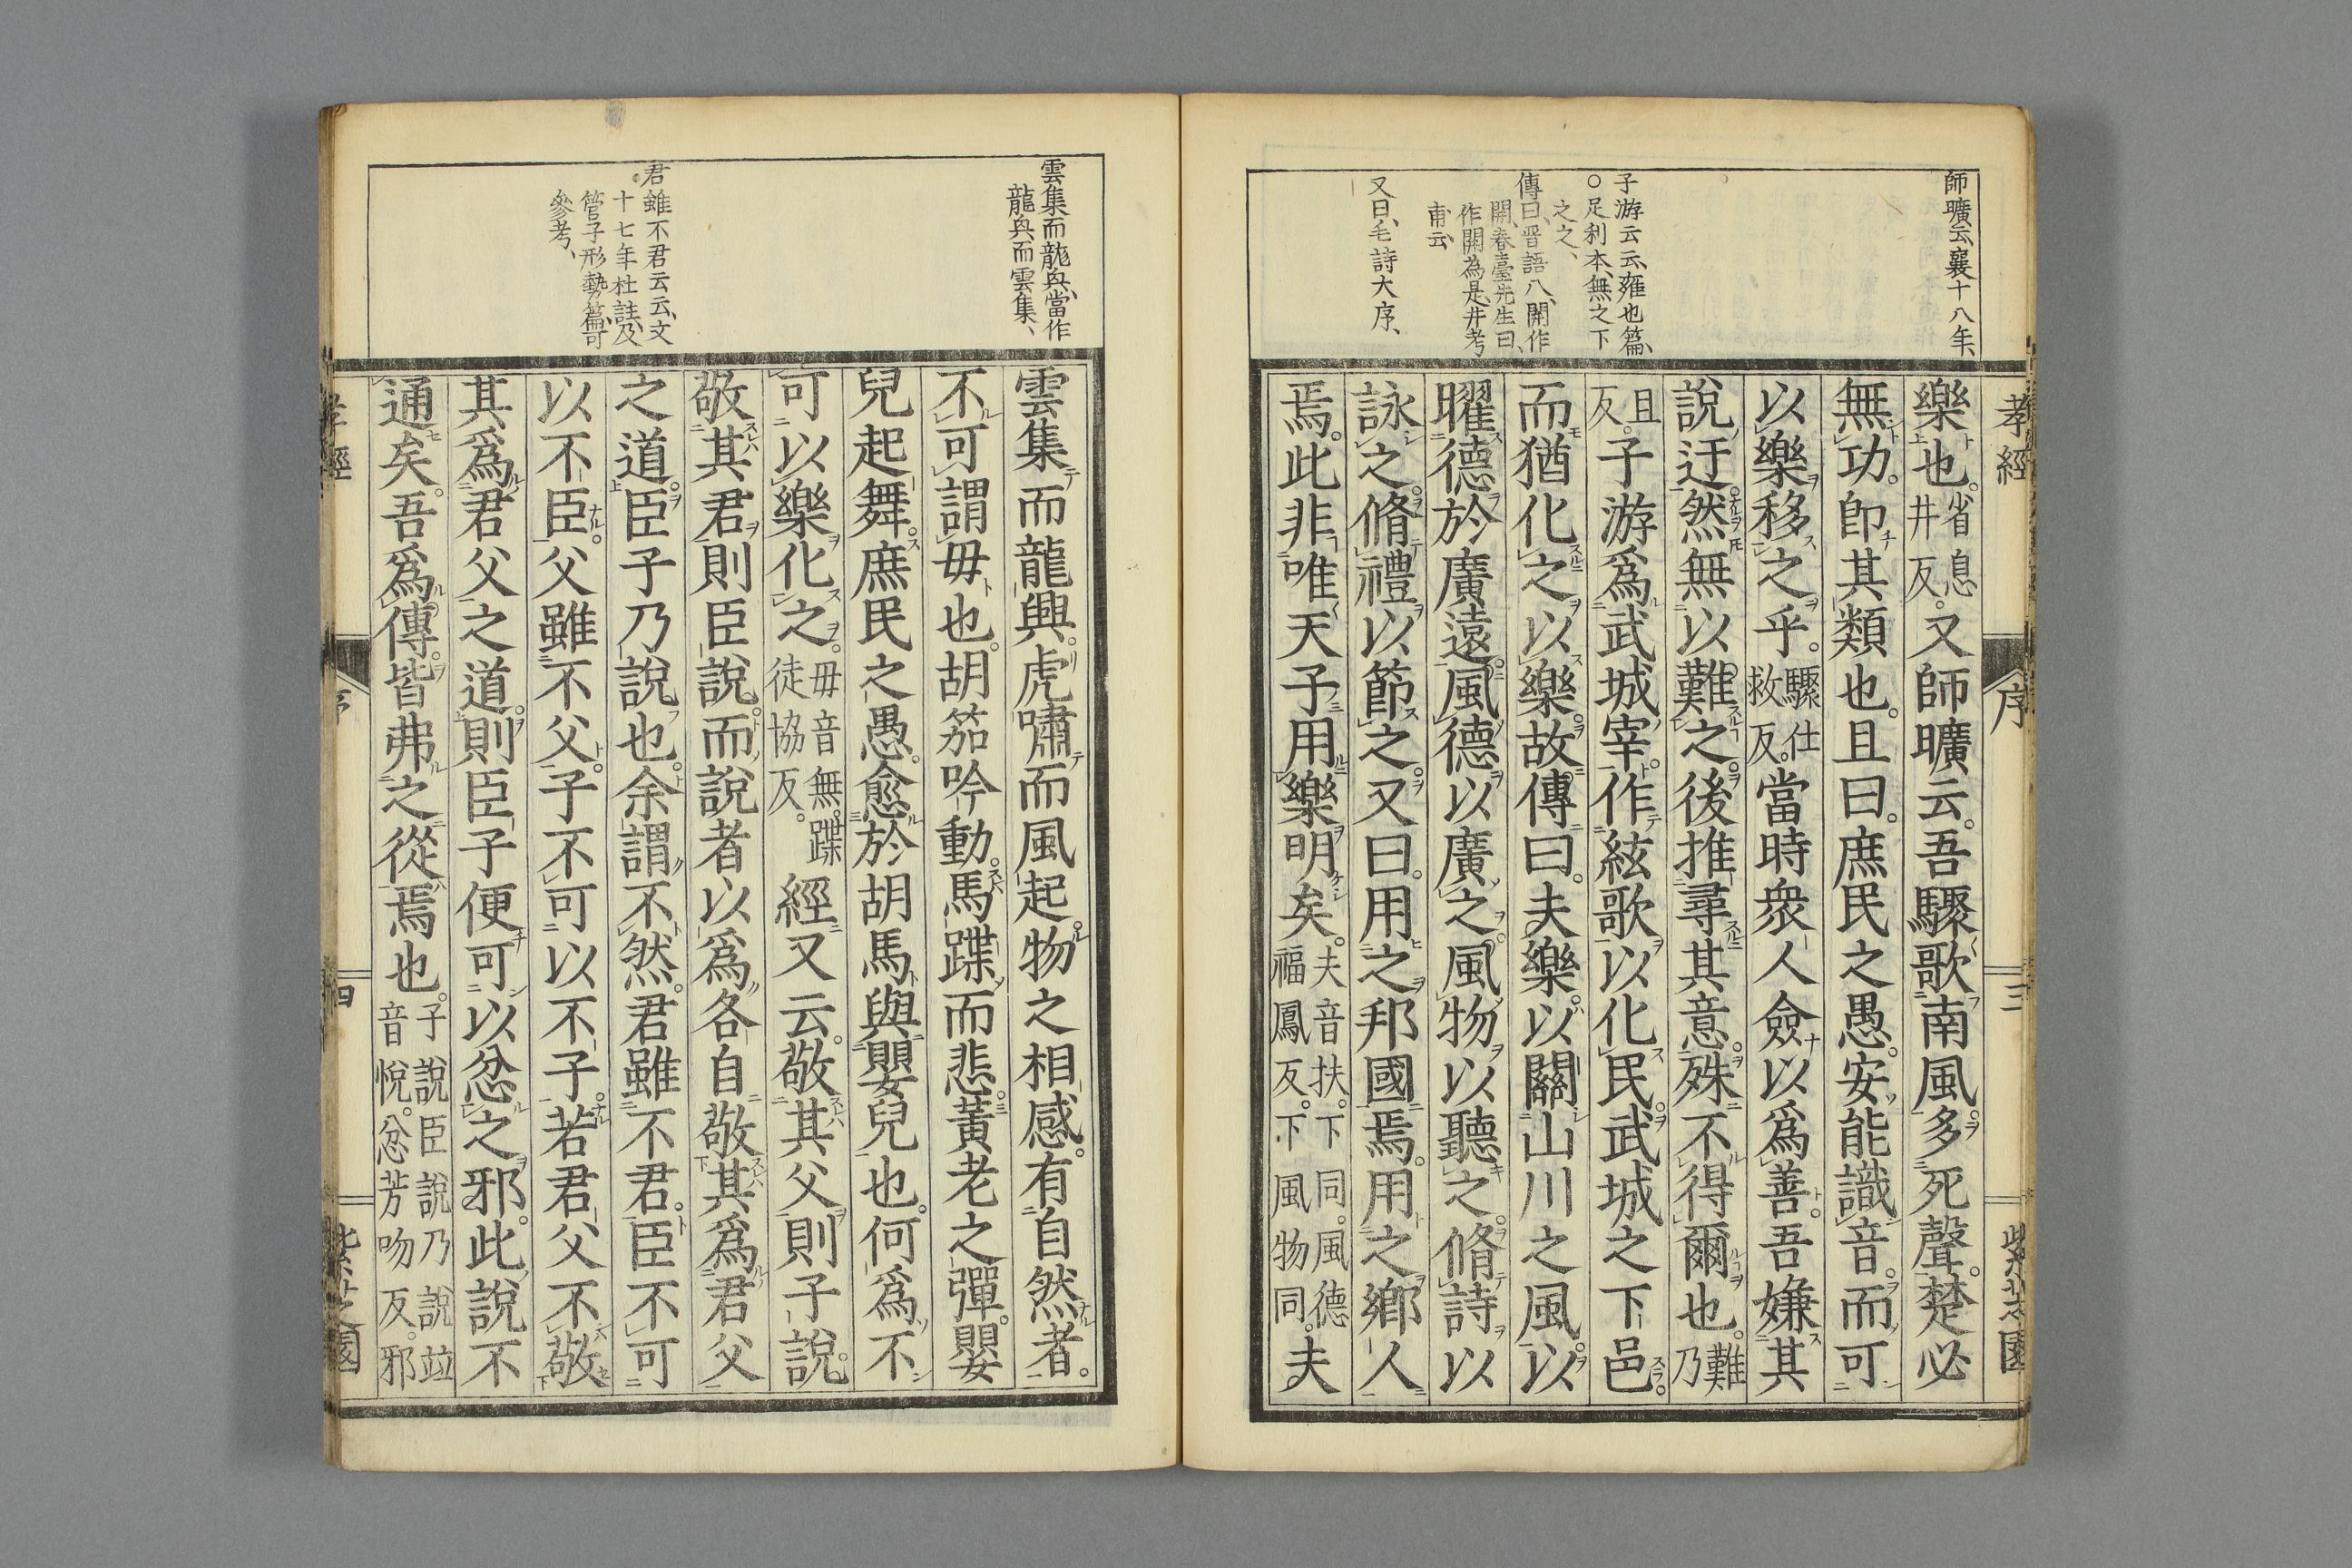 師曠云云、襄十八年、
子游云云、雍也篇、
○足利本、無之下
之之、
傳曰、晋語八、開作
開、春臺先生曰、
作開為是、井考
甫云、
又曰、毛詩大序、
孝經
序
三
紫芝園
樂也。省息井反。又師曠云。吾驟歌南風。多死聲。楚必
無功。即其類也。且曰。庶民之愚。安能識音。而可
以樂移之乎。驟仕救反。當時衆人僉以爲善。吾嫌其
說迂。然無以難之。後推尋其意。殊不得爾也。難乃
且反。子游爲武城宰。作絃歌以化民。武城之下邑。
而猶化之以樂。故傳曰。夫樂。以關山川之風。以
曜德於廣遠。風德以廣之。風物以聽之。脩詩以
詠之。脩禮以節之。又曰。用之邦國焉。用之鄉人
焉。此非唯天子用樂明矣。夫音扶。下同。風德福鳳反。下風物同。夫
雲集而龍興、當作
龍興而雲集、
君雖不君云云、文
十七年杜註、及
管子形勢篇、可
參考、
雲集而龍興。虎嘯而風起。物之相感。有自然者。
不可謂毋也。胡笳吟動。馬蹀而悲。黃老之彈。嬰
兒起舞。庶民之愚。愈於胡馬與嬰兒也。何爲不
可以樂化之。毋音無。蹀徒協反。經又云。敬其父則子說。
敬其君則臣說。而說者以爲各自敬其爲君父
之道。臣子乃說也。余謂不然。君雖不君。臣不可
以不臣。父雖不父。子不可以不子。若君父不敬
其爲君父之道。則臣子便可以忿之邪。此說不
通矣。吾爲傳。皆弗之從焉也。子說臣說乃說竝音悅。忿芳吻反。邪
孝經
序
四
紫芝園